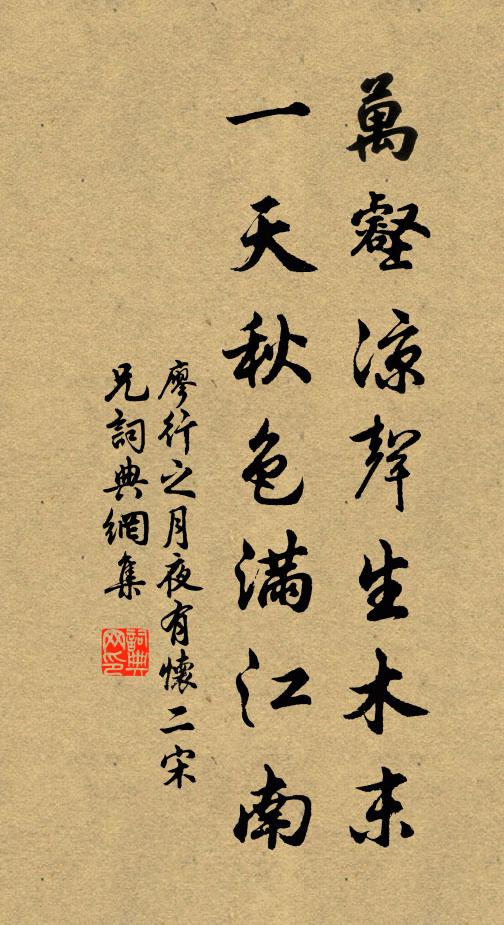 萬壑涼聲生木末
一天秋色滿江南
廖行之月夜有懷二宋
兄詞典網集
詞典网印